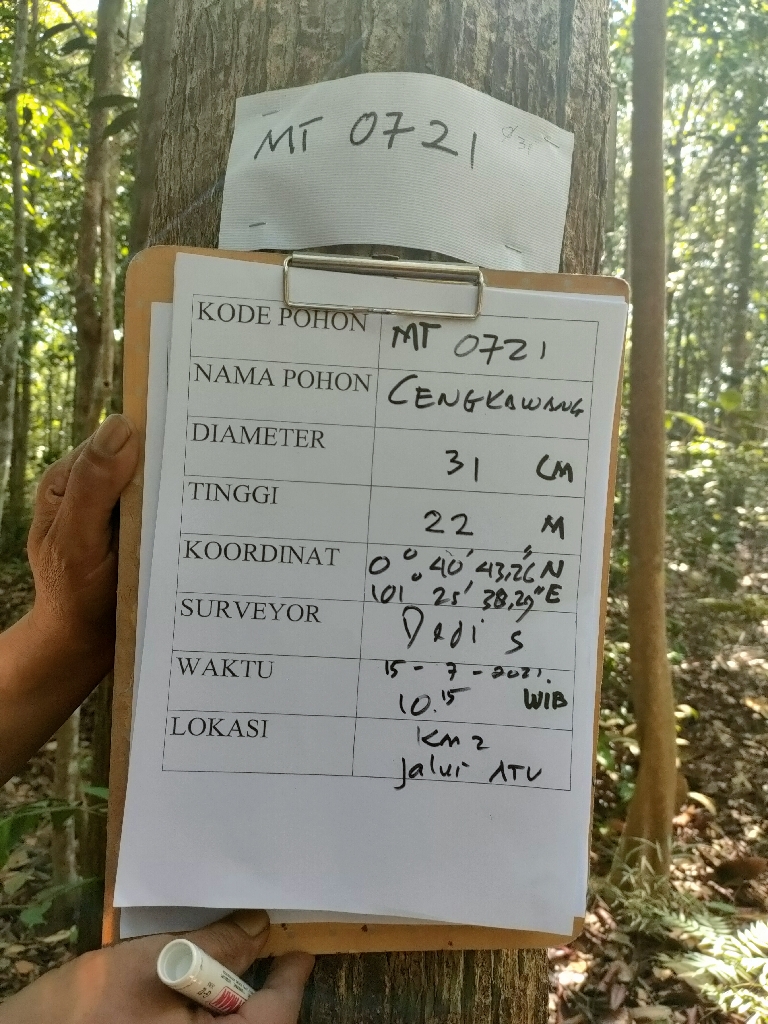 MT 0721
KODE POHON MT 0721
NAMA POHON CENGKAWANG
DIAMETER 31 CM
TINGGI 22 M
KOORDINAT 0° 40' 43,26" N
101° 25' 38,29" E
SURVEYOR Dedi S
WAKTU 15 - 7 - 2021.
10.15 WIB
LOKASI KM 2
Jalur ATU